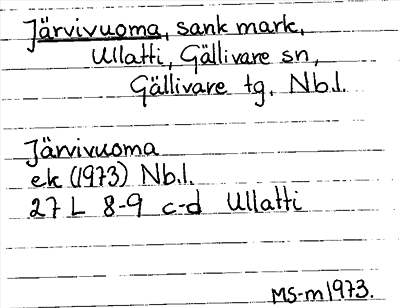 Järvivuoma, sank mark,
Ullatti, Gällivare sn,
Gällivare tg, Nb.l.
Järvivuoma
ek (1973) Nb.l.
27 L 8-9 c-d Ullatti
MS-m 1973.